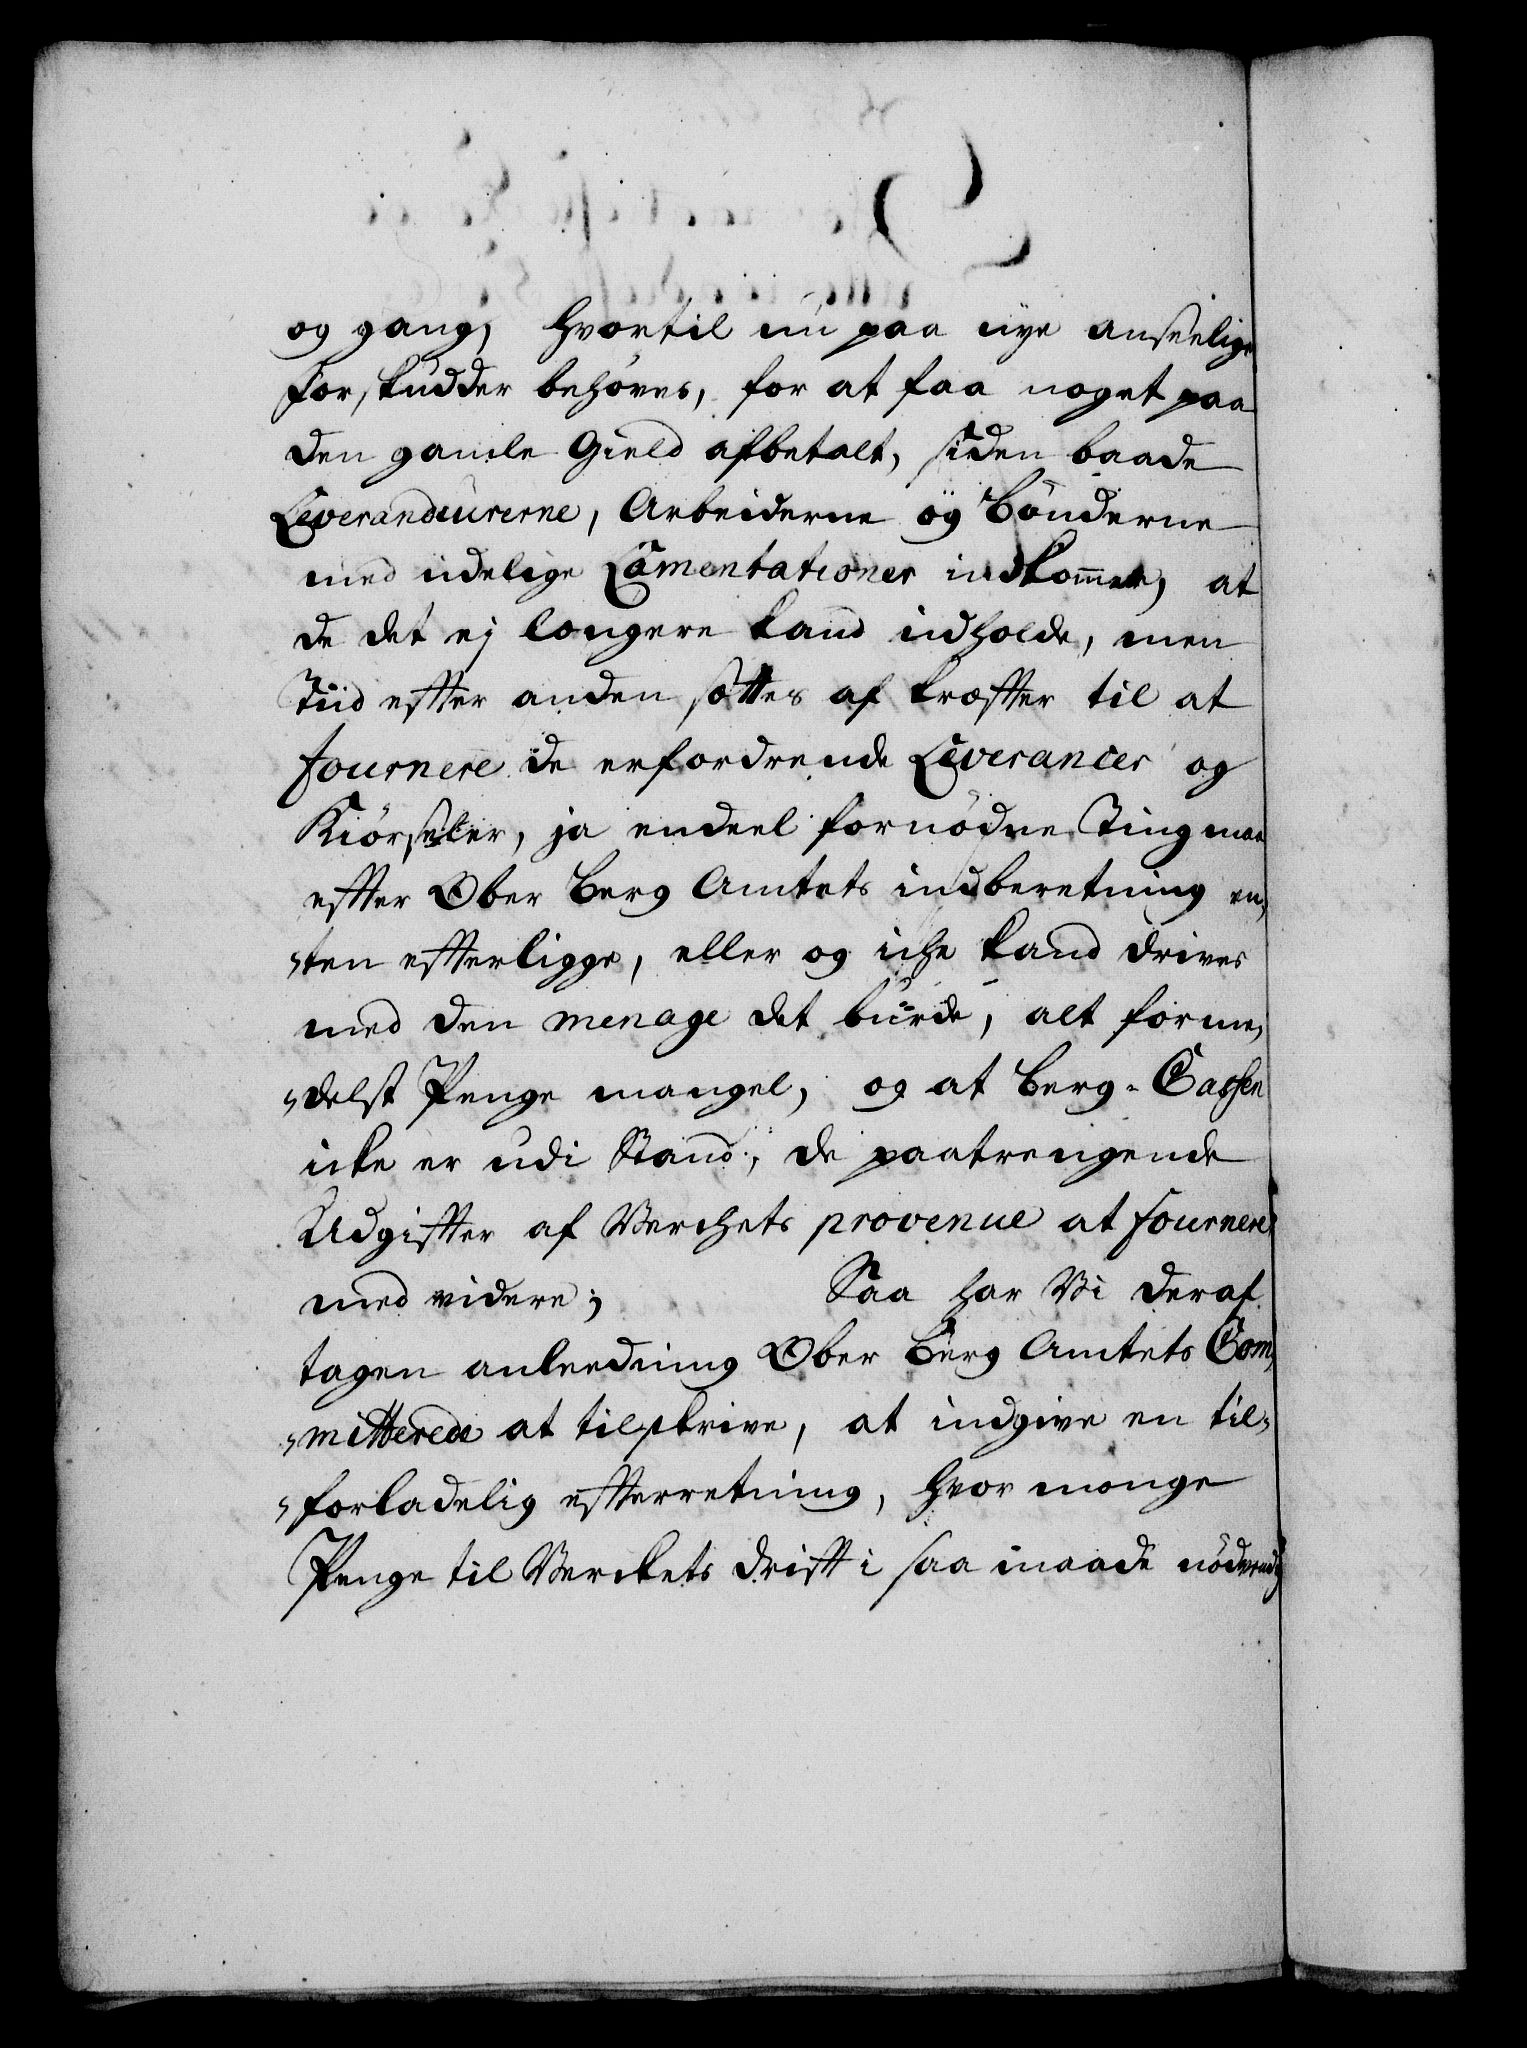 og gang, hvortil nu paa nye anseelige
Forskudder behöves, for at faa noget paa
den gamle Gield afbetalt, siden baade
Leverandeurerne, Arbeiderne og Bönderne
med idelige Lamentationer indkommer, at
de det ej længere kand udholde, men
Tiid effter anden sættes af kræffter til at
fournere de erfordrende Leverancer og
Kiörseler, ja endeel fornödne Ting maa
effter Ober Berg Amtets indberetning en,
„ten effterligge, eller og iche kand drives
med den menage det burde, alt forme,
„delst Penge mangel, og at Berg-Cassen
icke er udi Stand, de paatrengende
Udgiffter af Verchets provenue at fournere
med videre; Saa har Vi deraf
tagen anleedning Ober Berg Amtets Com,
„mitterede at tilskrive, at indgive en til„
„forladelig effterretning, hvor mange
Penge til Verckets Drifft i saa maade nödvendig